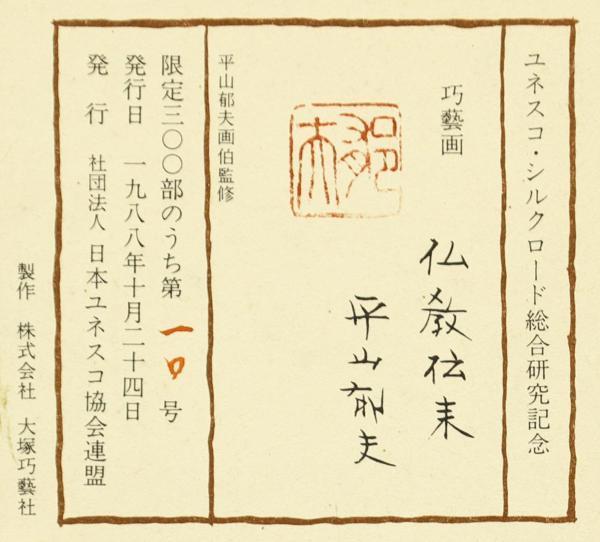 ユネスコ・シルクロード総合研究記念
巧藝画
仏教伝来
平山郁夫
郁夫
平山郁夫画伯監修
限定三〇〇部のうち第一〇号
発行日 一九八八年十月二十四日
発行 社団法人 日本ユネスコ協会連盟
製作 株式会社 大塚巧藝社